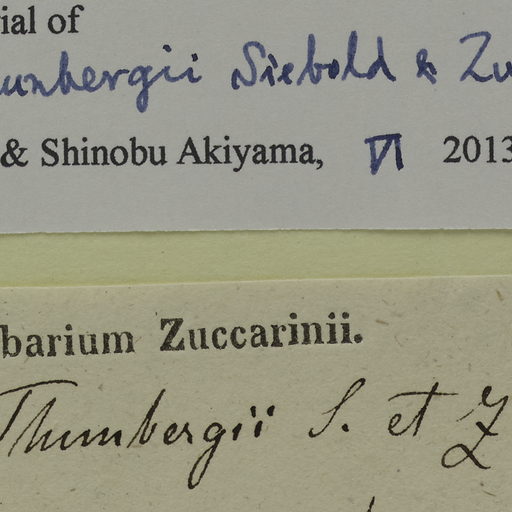 ial of
unbergii Siebold & Zu
& Shinobu Akiyama, VI 2013
barium Zuccarinii.
Thunbergii S. et Z